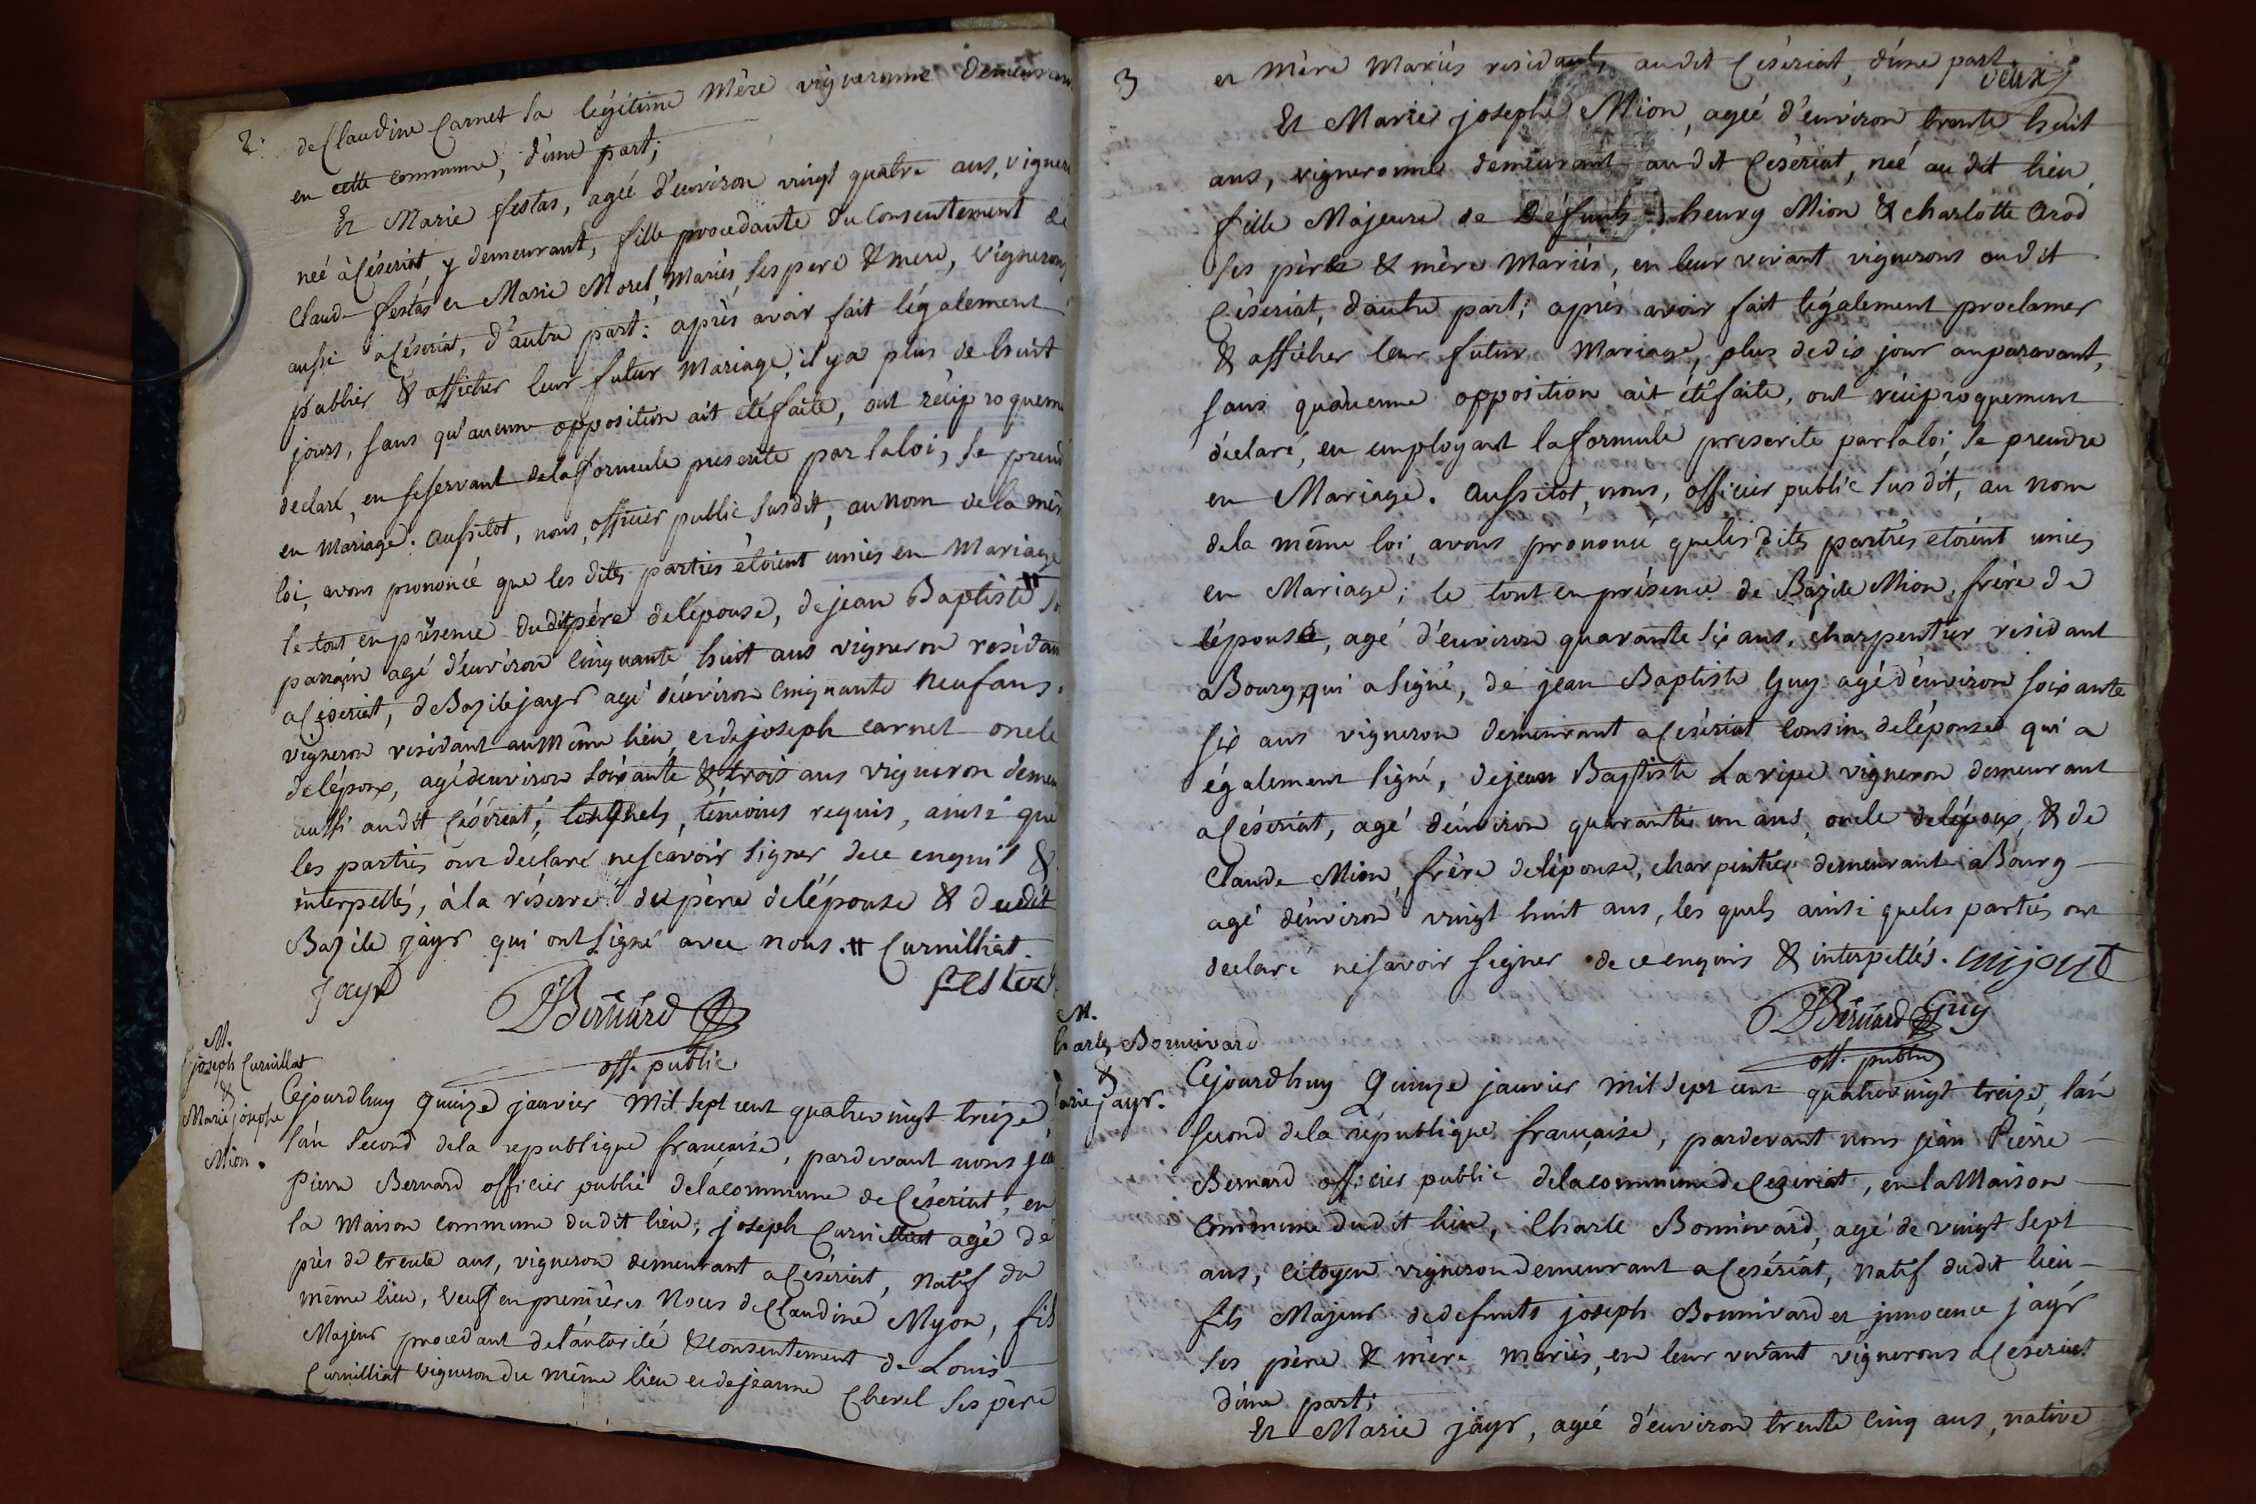 2.
de Claudine Carnet sa légitime Mère vigneronne demeurant
en cette commune, d'une part;
Et Marie festas, ageé d'environ vingt quatre ans, vigner
neé à Céseriat, y demeurant, fille procedante du Consentement de
Claude festas et Marie Morel, Mariés, ses pere & mere, vignerons
aussi a Céseriat, d'autre part: après avoir fait légalement
publier & afficher leur futur Mariage, il y a plus de huit
jours, sans qu'aucune opposition ait été faite, ont réciproquem
declaré, en se servant de la formule prescrite par la loi, se prend
en Mariage. Aussitot, nous, officier public susdit, au nom de la mêm
loi, avons prononcé que les dites parties étoient unies en Mariage
le tout en présence dudit père de l'épouse, de jean Baptiste #
parrain agé d'environ cinquante huit ans vigneron résidan
a Céseriat, de Bazile jayr agé d'environ cinquante neuf ans,
vigneron residant au même lieu, et de joseph carnet oncle
de l'époux, agé d'environ soixante & trois ans vigneron demeu
aussi audit Céseriat, lesquels, témoins requis, ainsi que
les parties ont declaré ne scavoir signer de ce enquis &
interpellés, à la réserve du père de l'épouse & dudit
Bazile jayr qui ont signé avec nous. # Curnilliat.
jayr
festas
JPBernard
off. public
M.
joseph Curnillat
&
Marie josephe
Mion.
Cejourdhuy quinze janvier Mil sept cent quatre vingt treize,
l'an second de la republique française, pardevant nous jea
Pierre Bernard officier public de la commune de Céseriat, en
la Maison commune dudit lieu, joseph Curnilliat agé de
près de trente ans, vigneron demeurant a Céseriat, natif du
même lieu, veuf en premières Noces de Claudine Myon, fils
Majeur procedant de l'autorité & consentement de Louis
Curnilliat vigneron du même lieu et de jeanne Chevel ses père
3
et Mère Mariés residants audit Céseriat, d'une part.
deux
Et Marie josephe Mion, ageé d'environ trente huit
ans, vigneronne demeurant audit Céseriat, neé audit lieu,
fille Majeure de Défunts henry Mion & charlotte Arod
ses père & mère Mariés, en leur vivant vignerons audit
Céseriat, d'autre part; après avoir fait légalement proclamer
& afficher leur futur Mariage, plus de dix jour auparavant,
sans qu'aucune opposition ait été faite, ont réciproquement
déclaré, en employant la formule prescrite par la loi, se prendre
en Mariage. Aussitot, nous, officier public susdit, au nom
de la même loi, avons prononcé que lesdites parties étoient unies
en Mariage; le tout en présence de Bazile Mion, frère de
l'épouse, agé d'environ quarante six ans, charpentier residant
a Bourg, qui a signé, de jean Baptiste Guy agé d'environ soixante
six ans vigneron demeurant a Céseriat cousin de l'épouse qui a
également signé, de jean Baptiste Laripe vigneron demeurant
a Céseriat, agé d'environ quarante un ans, oncle de l'époux, & de
Claude Mion, frère de l'épouse, charpentier demeurant a Bourg
agé d'environ vingt huit ans, les quels ainsi que les parties ont
declaré ne savoir signer de ce enquis & interpellés.
JPBernard Guy
off. public
M.
Charles Bonnivard
&
Marie jayr.
Cejourdhuy Quinze janvier mil sept cent quatre vingt treize, l'an
second de la république française, pardevant nous jean Pierre
Bernard officier public de la commune de Ceseriat, en la Maison
Commune dudit lieu, Charle Bonnivard, agé de vingt sept
ans, citoyen vigneron demeurant a Cesériat, natif dudit lieu
fils Majeur de defunts joseph Bonnivard et jnnocence jayr
ses père & mère mariés, en leur vivant vignerons a Céseriat
d'une part;
Et Marie jayr, ageé d'environ trente cinq ans, native